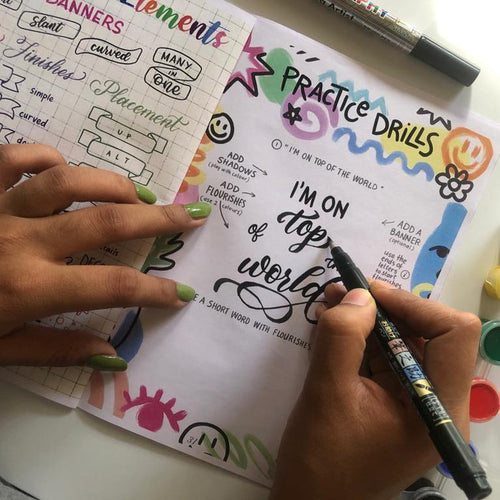 Elements
BANNERS
slant
curved
MANY
IN
ONE
Finishes
Placement
simple
curved
UP
ALT
PRACTICE DRILLS
① "I'M ON TOP OF THE WORLD"
ADD
SHADOWS
(play with colour)
ADD
FLOURISHES
(use 2 colours)
I'M ON
top
of
world
ADD A
BANNER
(optional)
USE THE
ENDS OF
LETTERS
TO START
FLOURISHES
A SHORT WORD WITH FLOURISHES.